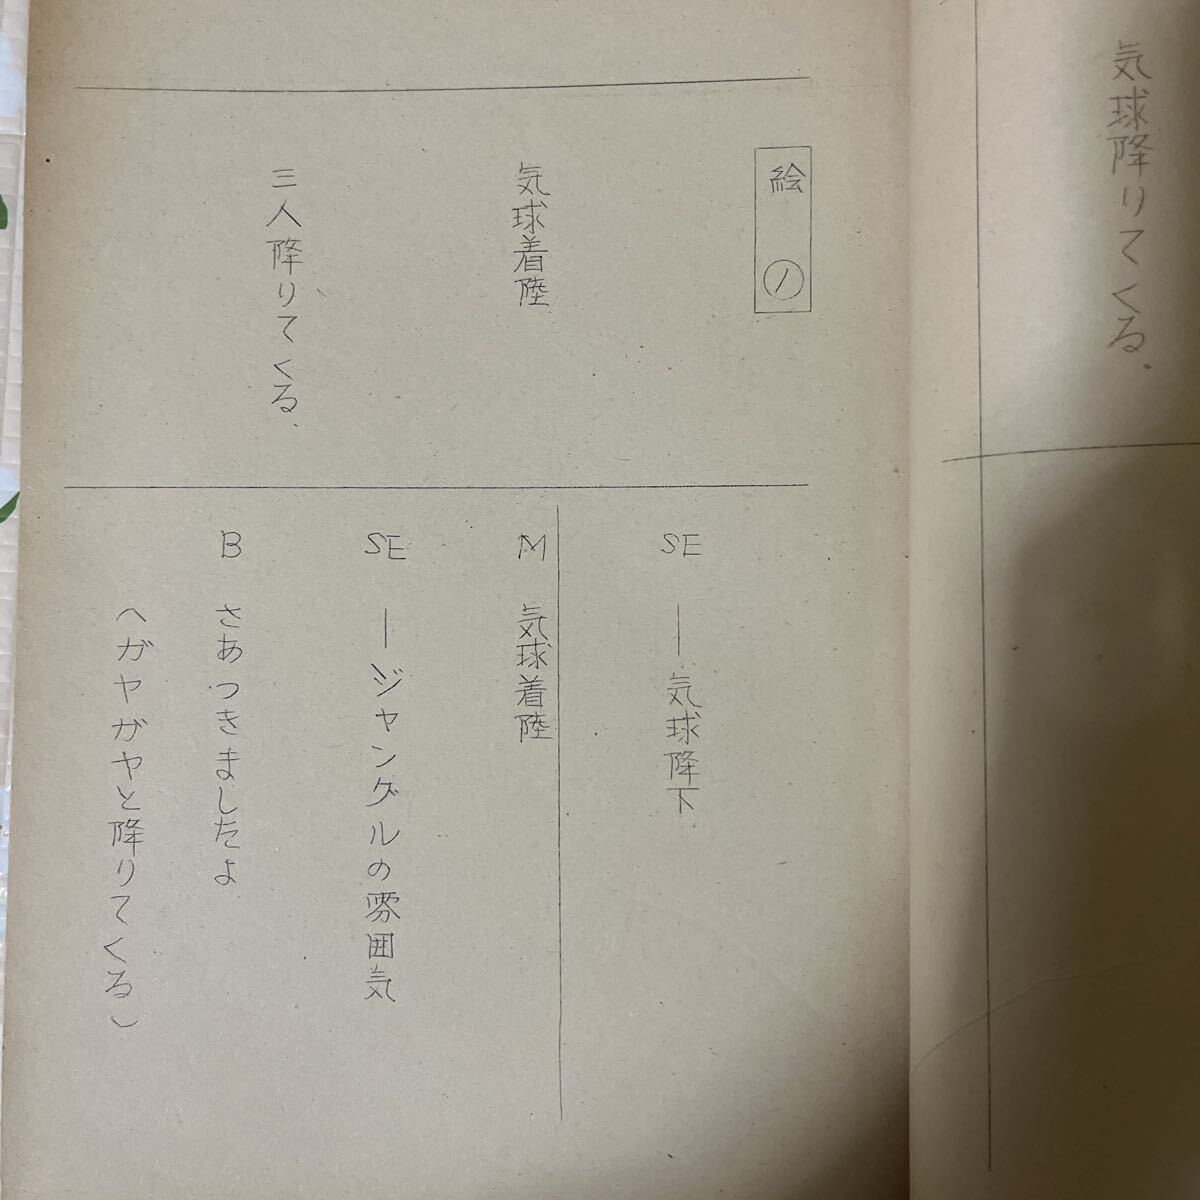 気球降りてくる.
絵 ①
気球着陸
三人降りてくる.
SE ―気球降下
M 気球着陸
SE ―ジャングルの雰囲気
B さあつきましたよ
(ガヤガヤと降りてくる)